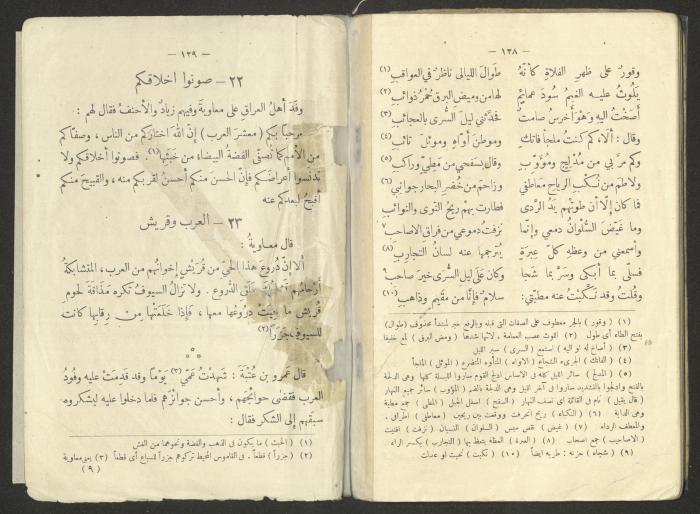 — ١٣٨ —
وقورٌ على ظهرِ الفلاةِ كأنّهُ طوالَ الليالى ناظرٌ في العواقبِ (١)
يَلُوثُ عليه الغيمُ سُودَ عمائمٍ لها من وميضِ البرقِ حُمْرُ ذوائبِ (٢)
أصَخْتُ اليه وَهْوَ أخرسُ صامتٌ فحدّثني ليلَ السُّرى بالعجائبِ (٣)
وقال : ألا، كم كنتُ ملجأَ فاتكٍ وموطنَ أوّاهٍ وموئلَ تائبِ (٤)
وكم مرَّ بي من مُدْلِجٍ ومُؤَوِّبٍ وقال بسَفْحي من مَطِيٍّ وراكبِ (٥)
ولاطمَ من نُكْبِ الرياحِ معاطفي وزاحمَ من خُضرِ البحارِ جوانبي (٦)
فما كان إلّا أن طوتْهم يَدُ الرَّدى فطارت بهم ريحُ النوى والنوائبِ
وما غَيَّضَ السُّلوانُ دمعي وإنّما نَزَفْتُ دموعي من فراقِ الاصاحبِ ٧
وأسمعني من وعظهِ كلَّ عبرةٍ يُترجمها عنه لسانُ التجاربِ (٨)
فسلّى بما أبكى وسَرَّ بما شَجا وكانَ على ليلِ السُّرى خيرَ صاحبِ ٩
وقلتُ وقد نَكَّبتُ عنه مطيّتي: سلامٌ فإنّا من مقيمٍ وذاهبِ (١٠)
(١) ( وقور ) بالجر معطوف على الصفات التى قبله وبالرفع خبر لمبتدأ محذوف (طوال)
بفتح الطاء أى طول (٢) اللوث عصب العمامة
(٣) أصاخ له او اليه : استمع ( السرى ) سير الليل
(٤) الفاتك : الجرىء الشجاع ( الموئل ) الملجأ
(٥) ( المدلج ) سائر الليل كله
( قال يقيل ) نام في القائلة اى نصف النهار ( السفح ) اسفل الجبل ( المطي ) جمع مطية
وهي الدابة (٦) ( النكباء ) ريح انحرفت ووقعت بين ريحين ( معاطفي ) اطرافي
(٧) ( غيض ) نقص ( السلوان ) النسيان ( نزفت ) افنيت
( الاصاحب ) جمع اصحاب (٨) ( العبرة ) العظة يتعظ بها ( التجارب ) بكسر الراء
(٩) ( شجاه ) حزنه : طربه ايضاً (١٠) ( نكبت ) نحيت او عدلت
— ١٣٩ —
٢٢ – صونوا اخلاقكم
وفَدَ أهلُ العراقِ على معاويةَ وفيهم زيادٌ والأحنفُ فقال لهم :
مرحباً بكم ( معشرَ العرب ) إنّ اللهَ اختارَكم من الناس ، وصفّاكم
من الأمم كما تُصفّى الفضةُ البيضاءُ من خَبَثِها (١). فصونوا أخلاقكم ولا
تدنّسوا أعراضَكم فإنّ الحسنَ منكم أحسنُ لقربكم منه ، والقبيحَ منكم
أقبحُ لبعدكم عنه
٢٣ – العرب وقريش
قال معاويةُ :
ألا إنّ دُروعَ هذا الحيِّ من قُرَيشٍ إخوانُهم من العرب، المتشابكةُ
أرحامُهم حَلَقِ الدُّروع . ولا تزالُ السيوفُ تكره مَذاقةَ لحوم
قُريشٍ ما بقيت دُروعُها معها ، فإذا خلَعَتْها من رقابِها كانت
للسيوفِ جَزَراً (٢)
* * *
قال عَمرو بن عُتبةَ : شهدْتُ عمّي (٣) يوماً وقد قدِمَتْ عليه وفُودُ
العرب فقضى حوائجَهم ، وأحسن جوائزَهم فلما دخلوا عليه ليشكروه
سبقهم إلى الشكر فقال :
(١) (الخبث) ما يكون في الذهب والفضة ونحوهما من الغش
(٢) (جزراً) قطعاً. في القاموس المحيط تركوهم جزراً للسباع أى قطعاً (٣) يعني معاوية
(٩)